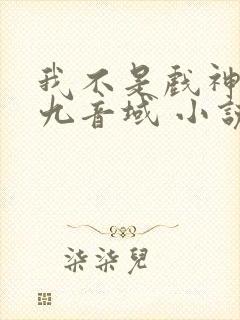 我不是戲神
九音域 小説
柒柒兒